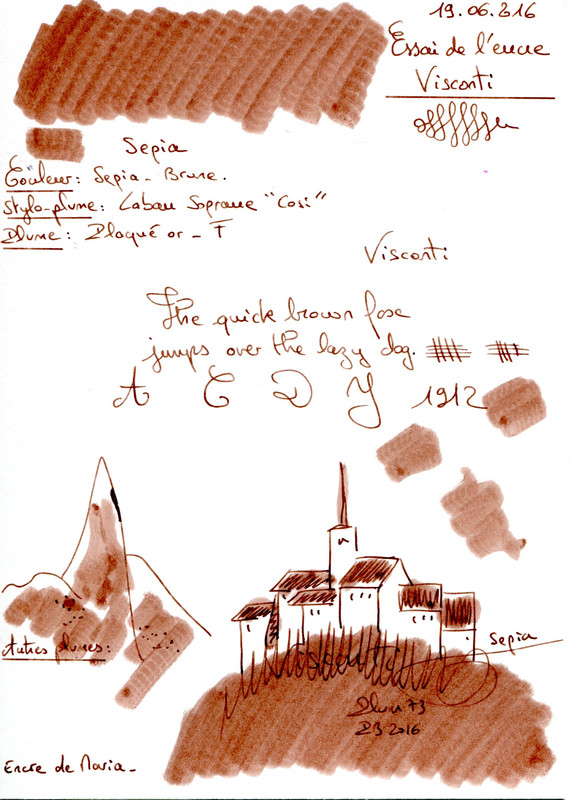 19.06.2016
Essai de l'encre
Visconti
Sepia
Couleur: Sepia - Brune.
Stylo-plume: Laban Soprane "Cosi"
Plume: Plaqué or - F
Visconti
The quick brown foxe
jumps over the lazy dog.
A C D Y 1912
Autres plumes:
Sepia
Plum73
23 2016
Encre de Maria -